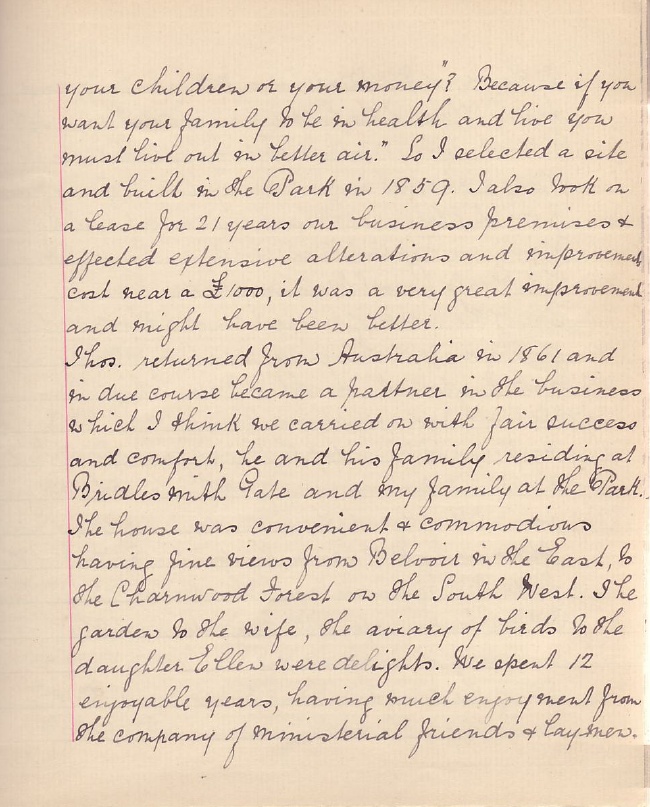 your children or your money"? Because if you
want your family to be in health and live you
must live out in better air." So I selected a site
and built in the Park in 1859. I also took on
a lease for 21 years our business premises &
effected extensive alterations and improvements
cost near a £1000, it was a very great improvement
and might have been better.
Thos. returned from Australia in 1861 and
in due course became a partner in the business
which I think we carried on with fair success
and comfort, he and his family residing at
Bridlesmith Gate and my family at the Park.
The house was convenient & commodious
having fine views from Belvoir in the East, to
the Charnwood Forest on the South West. The
garden to the wife, the aviary of birds to the
daughter Ellen were delights. We spent 12
enjoyable years, having much enjoyment from
the company of ministerial friends & laymen.